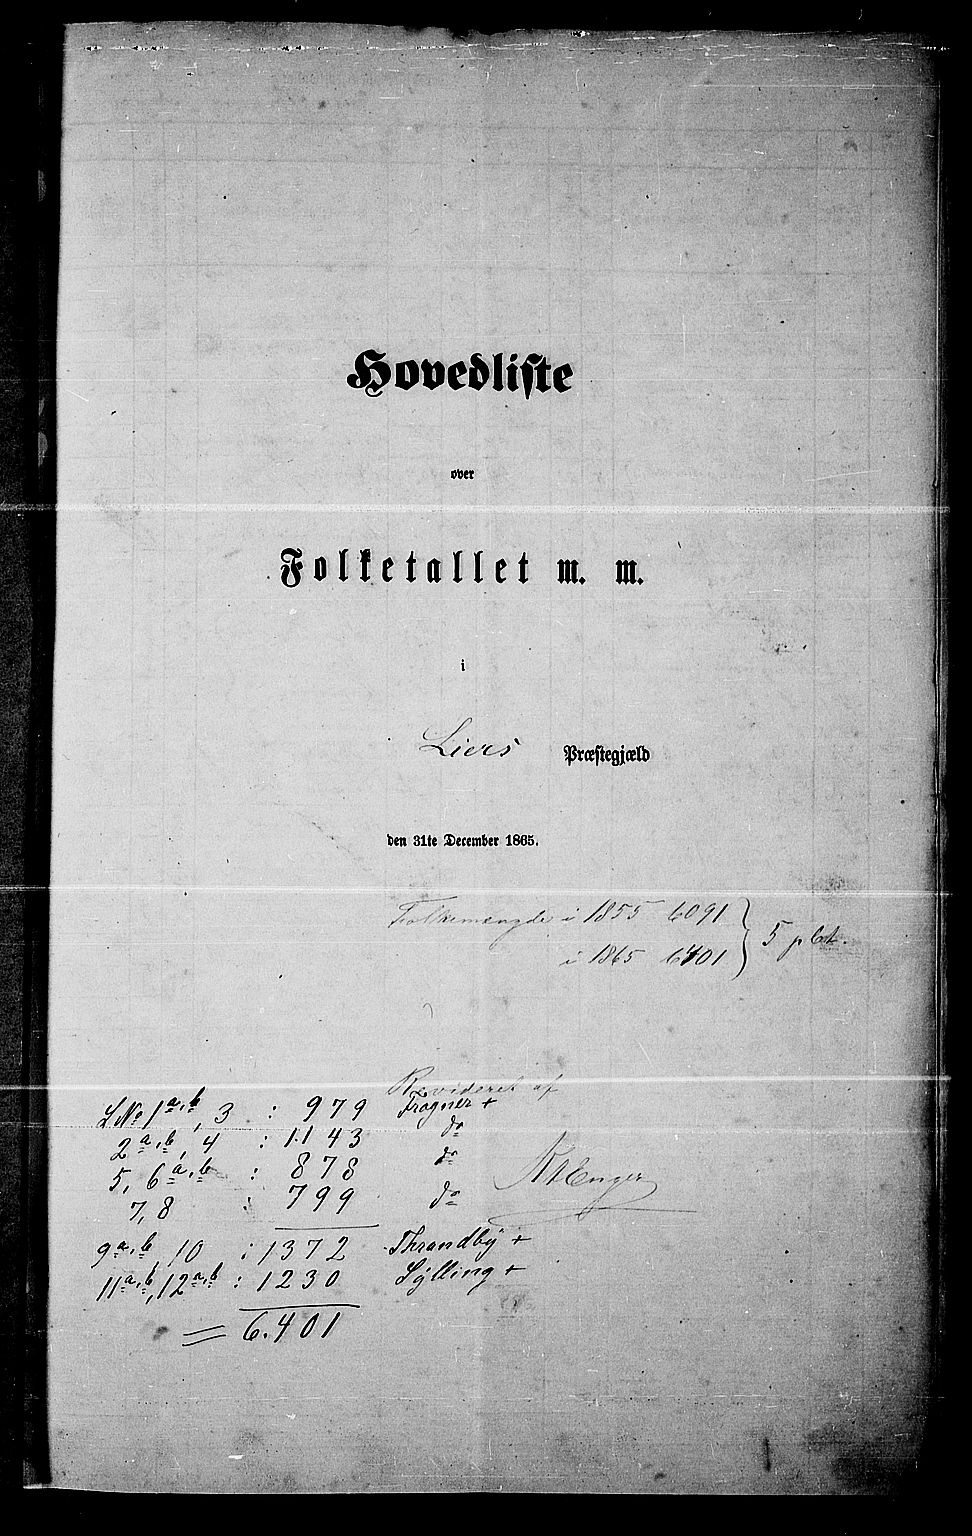 Hovedliste
over
Folketallet m. m.
i
Liers Præstegjæld
den 31te December 1865.
Folkemængde i 1855 6091 } 5 pCt.
i 1865 6401
Revideret af
LNo 1a,b, 3 : 979 Frogner +
2a,b, 4 : 1143 do
5, 6a,b : 878 do
7, 8 : 799 do
9a,b, 10 : 1372 Thrandby +
11a,b, 12a,b : 1230 Sylling +
= 6.401